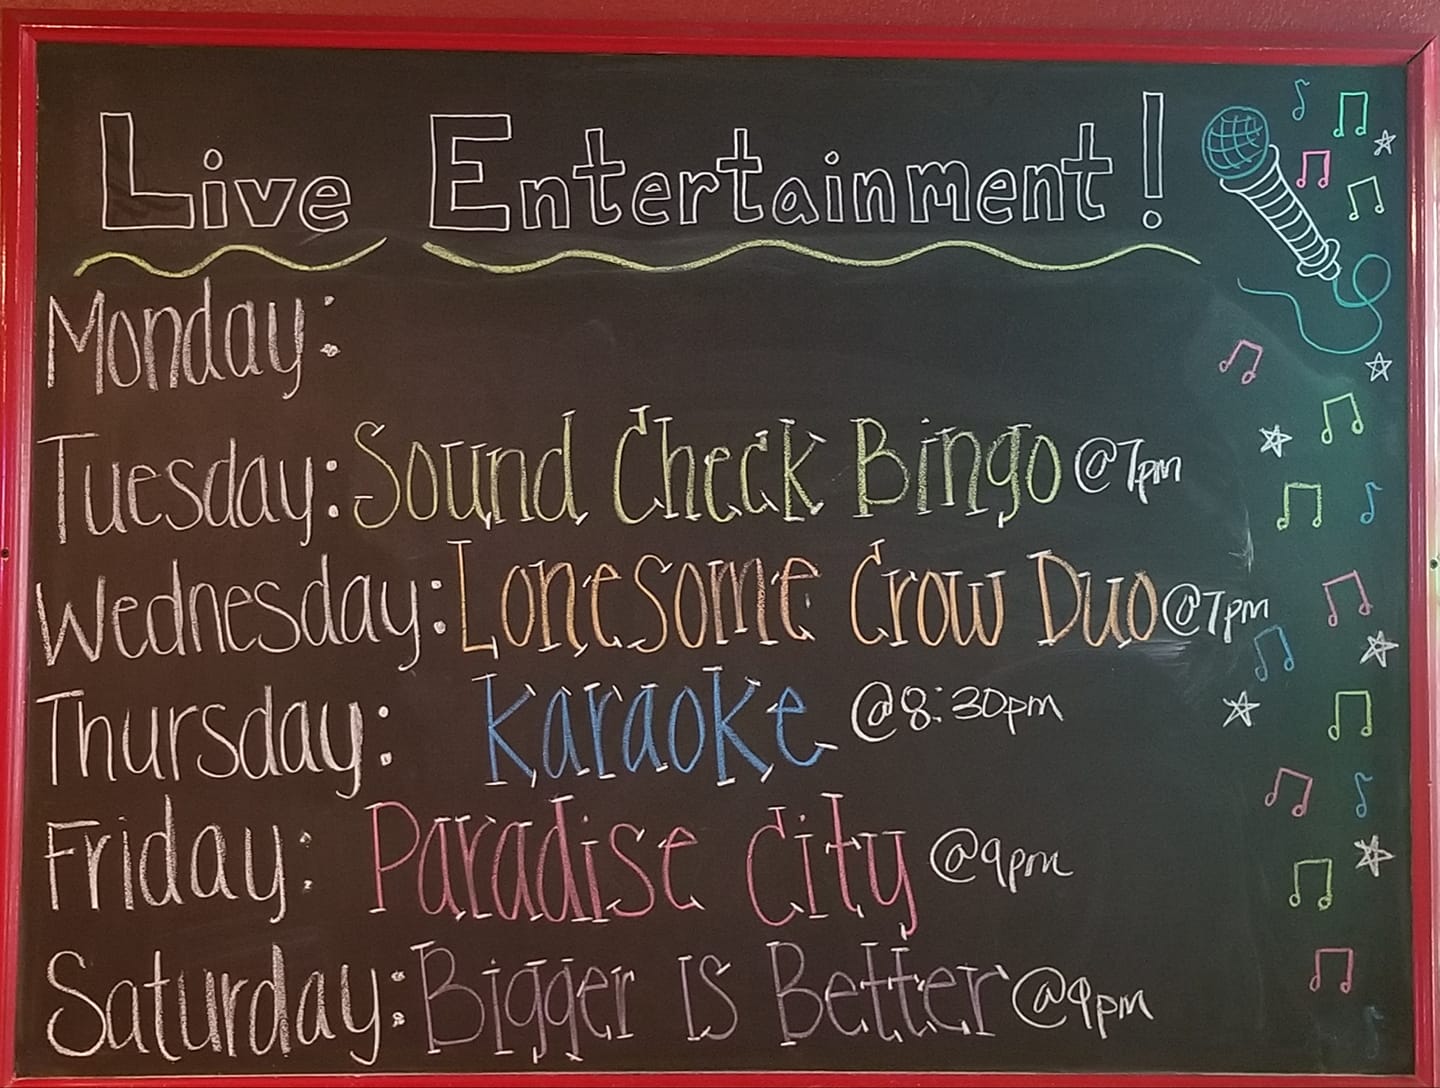 Live Entertainment!
Monday:
Tuesday: Sound Check Bingo @7pm
Wednesday: Lonesome Crow Duo @7pm
Thursday: Karaoke @8:30pm
Friday: Paradise City @9pm
Saturday: Bigger is Better @9pm